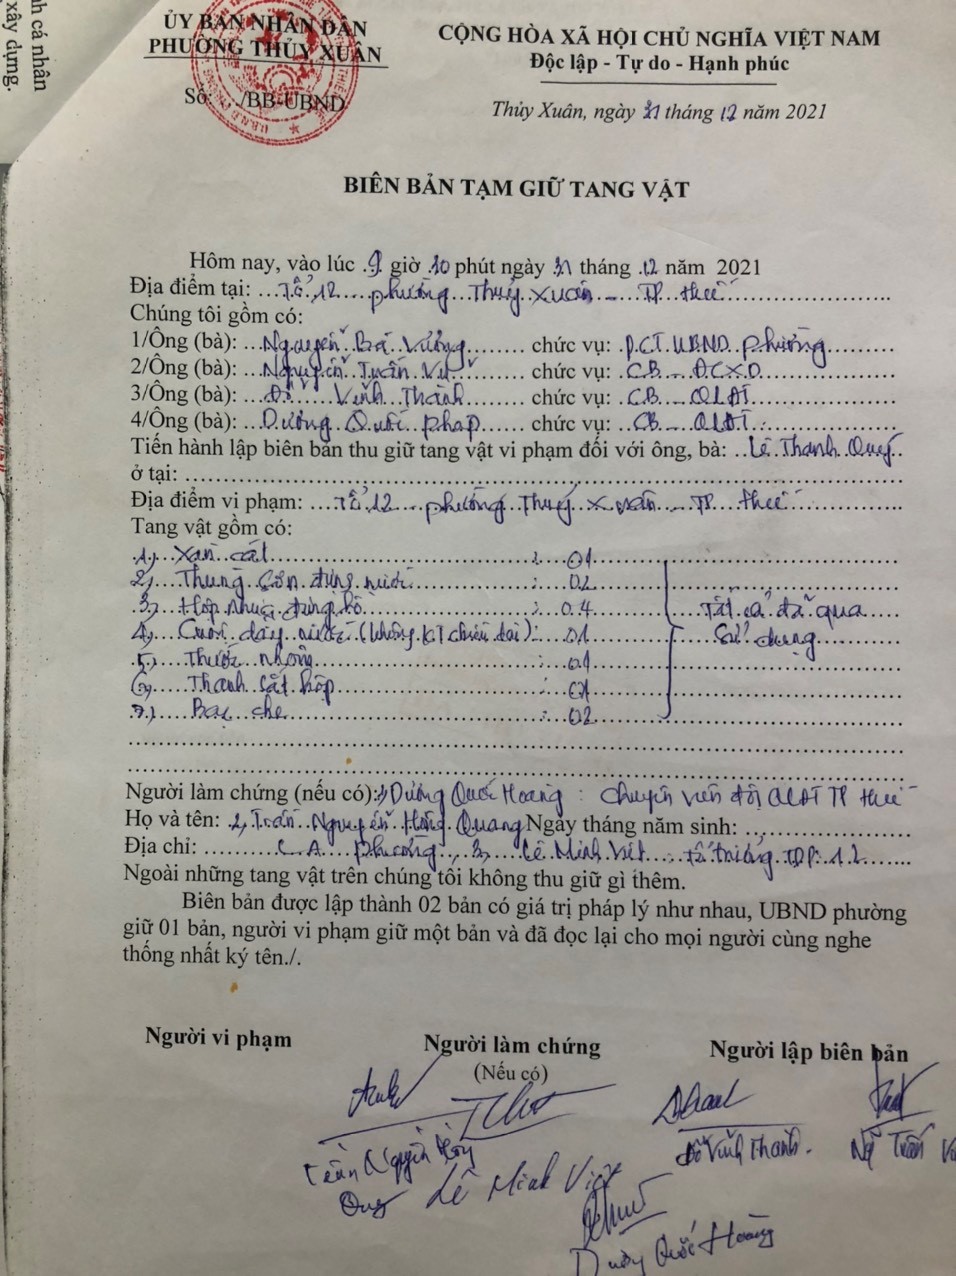 nh cá nhân
xây dựng.
ỦY BAN NHÂN DÂN
PHƯỜNG THỦY XUÂN
Số: .../BB-UBND
CỘNG HÒA XÃ HỘI CHỦ NGHĨA VIỆT NAM
Độc lập - Tự do - Hạnh phúc
Thủy Xuân, ngày 31 tháng 12 năm 2021
BIÊN BẢN TẠM GIỮ TANG VẬT
Hôm nay, vào lúc 9 giờ 10 phút ngày 31 tháng 12 năm 2021
Địa điểm tại: Tổ 12 phường Thuỷ Xuân - TP Huế
Chúng tôi gồm có:
1/Ông (bà): Nguyễn Bá Vường chức vụ: P.CT.UBND phường
2/Ông (bà): Nguyễn Tuấn chức vụ: CB - ĐCXD
3/Ông (bà): Đỗ Vĩnh Thành chức vụ: CB - QLĐT
4/Ông (bà): Dương Quốc Pháp chức vụ: CB - QLĐT
Tiến hành lập biên bản thu giữ tang vật vi phạm đối với ông, bà: Lê Thanh Quý
ở tại:
Địa điểm vi phạm: Tổ 12 phường Thuỷ Xuân - TP Huế
Tang vật gồm có:
1) Xẻn cát : 01
2) Thùng sơn đựng nước : 02
3) Hộp nhựa đựng hồ : 04 Tất cả đã qua
4) Cuộn dây nước (không kể chiều dài): 01 Sử dụng
5) Thước nhôm : 01
6) Thanh sắt hộp : 01
7) Bạt che : 02
Người làm chứng (nếu có): 1) Dương Quốc Hoàng : Chuyên viên đội QLĐT TP Huế
Họ và tên: 2, Trần Nguyễn Hồng Quang Ngày tháng năm sinh:
Địa chỉ: C.A phường, 3, Lê Minh Việt - tổ trưởng TDP 12
Ngoài những tang vật trên chúng tôi không thu giữ gì thêm.
Biên bản được lập thành 02 bản có giá trị pháp lý như nhau, UBND phường
giữ 01 bản, người vi phạm giữ một bản và đã đọc lại cho mọi người cùng nghe
thống nhất ký tên./.
Người vi phạm
Người làm chứng
(Nếu có)
Người lập biên bản
Trần Nguyễn Hồng
Quang
Lê Minh Việt
Đỗ Vĩnh Thành.
Ng Tuấn V
Dương Quốc Hoàng